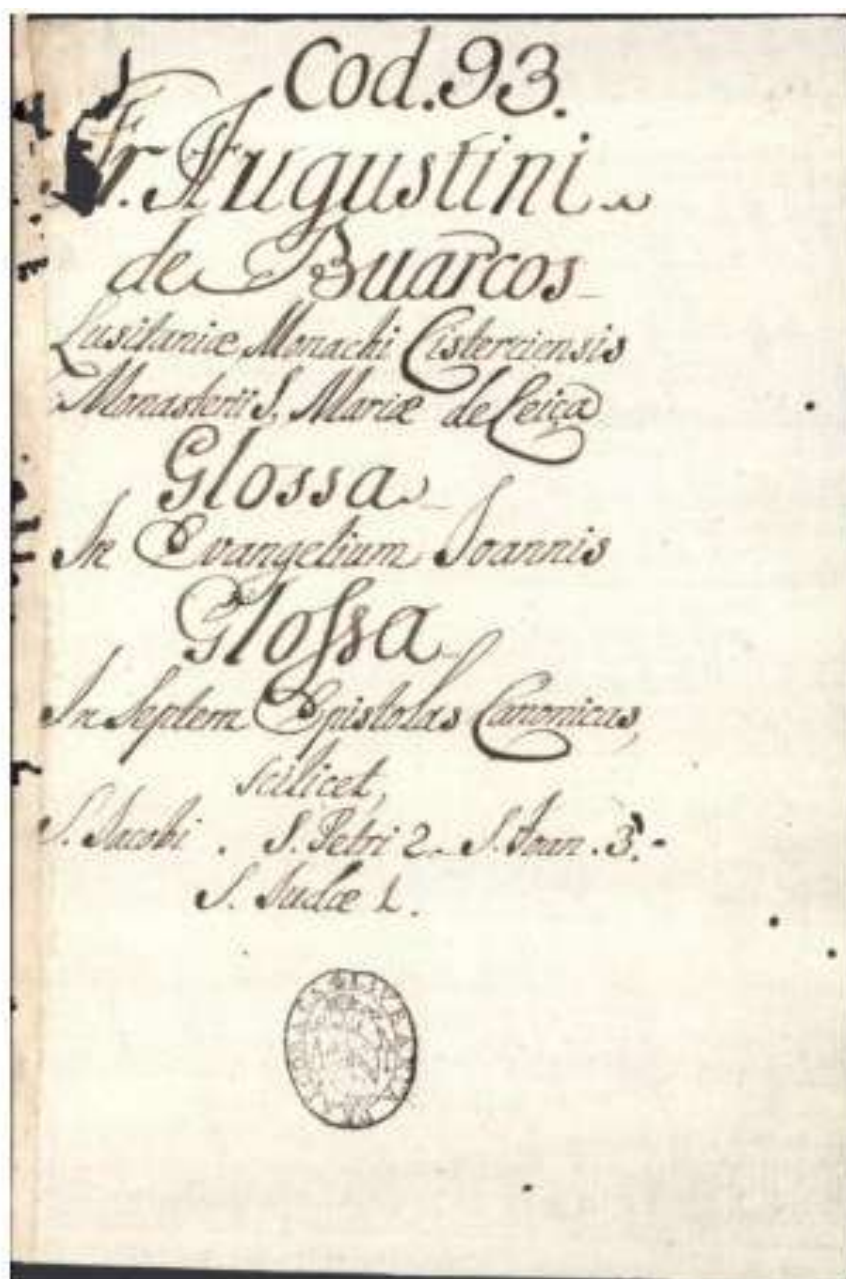 Cod. 93.
Fr. Augustini
de Buarcos
Lusitaniæ Monachi Cisterciensis
Monasterii S. Mariæ de Ceiça
Glossa
In Evangelium Joannis
Glossa
In Septem Epistolas Canonicas,
scilicet,
S. Jacobi . S. Petri 2. S. Joan . 3.
S. Judæ 1.